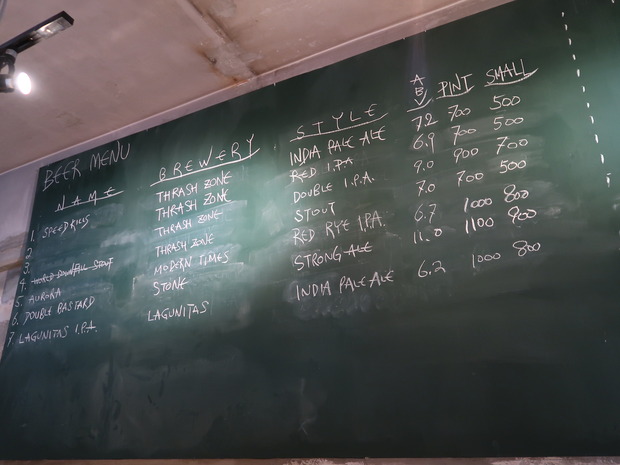 BEER MENU
NAME BREWERY STYLE ABV PINT SMALL
1. SPEED KILLS THRASH ZONE INDIA PALE ALE 7.2 700 500
2. THRASH ZONE RED I.P.A 6.9 700 500
3. THRASH ZONE DOUBLE I.P.A. 9.0 900 700
4. WORLD DOWNFALL STOUT THRASH ZONE STOUT 7.0 700 500
5. AURORA MODERN TIMES RED RYE I.P.A. 6.7 1000 800
6. DOUBLE BASTARD STONE STRONG ALE 11.0 1100 900
7. LAGUNITAS I.P.A. LAGUNITAS INDIA PALE ALE 6.2 1000 800